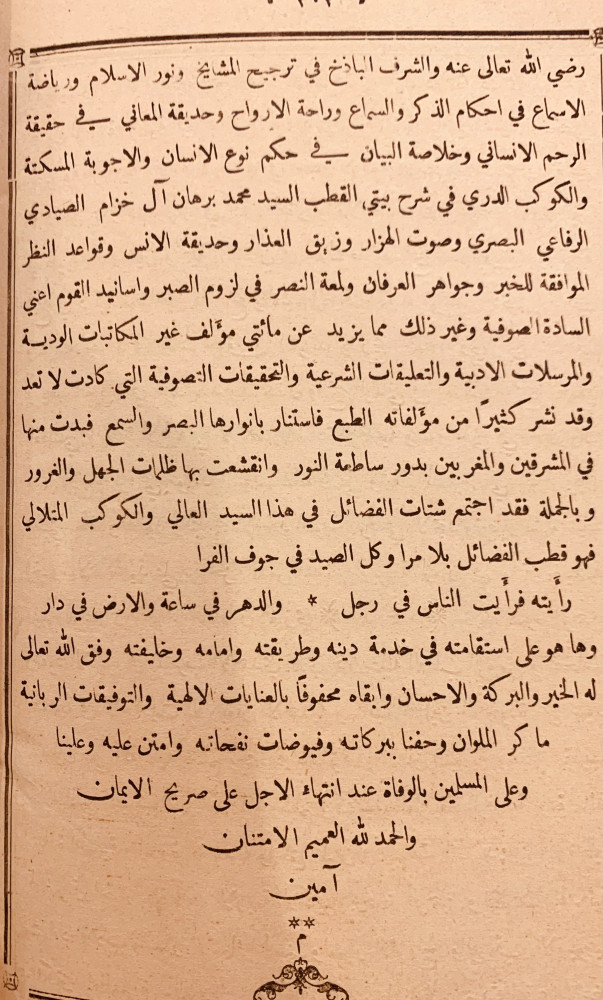 رضي الله تعالى عنه والشرف الباذخ في ترجيح المشايخ ونور الاسلام ورياضة
الاسماع في احكام الذكر والسماع وراحة الارواح وحديقة المعاني في حقيقة
الرحم الانساني وخلاصة البيان في حكم نوع الانسان والاجوبة المسكتة
والكوكب الدري في شرح بيتي القطب السيد محمد برهان آل خزام الصيادي
الرفاعي البصري وصوت الهزار وزيق العذار وحديقة الانس وقواعد النظر
الموافقة للخبر وجواهر العرفان ولمعة النصر في لزوم الصبر واسانيد القوم اعني
السادة الصوفية وغير ذلك مما يزيد عن مائتي مؤلف غير المكاتبات الودية
والمرسلات الادبية والتعليقات الشرعية والتحقيقات التصوفية التي كادت لا تعد
وقد نشر كثيرًا من مؤلفاته الطبع فاستنار بانوارها البصر والسمع فبدت منها
في المشرقين والمغربين بدور ساطعة النور وانقشعت بها ظلمات الجهل والغرور
وبالجملة فقد اجتمع شتات الفضائل في هذا السيد العالي والكوكب المتلالي
فهو قطب الفضائل بلا مرا وكل الصيد في جوف الفرا
رأيته فرأيت الناس في رجل * والدهر في ساعة والارض في دار
وها هو على استقامته في خدمة دينه وطريقته وامامه وخليفته وفق الله تعالى
له الخير والبركة والاحسان وابقاه محفوفًا بالعنايات الالهية والتوفيقات الربانية
ما كر الملوان وحفنا ببركاته وفيوضات نفحاته وامتن عليه وعلينا
وعلى المسلمين بالوفاة عند انتهاء الاجل على صريح الايمان
والحمد لله العميم الامتنان
آمين
**
م